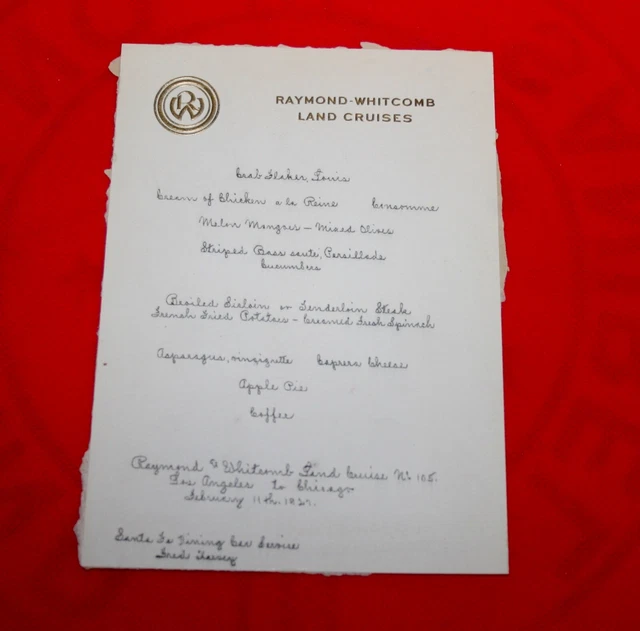 RW
RAYMOND-WHITCOMB
LAND CRUISES
Crab Flakes, Louis
Cream of Chicken a la Reine Consomme
Melon Mangoes - Mixed Olives
Striped Bass saute, Persillade
Cucumbers
Broiled Sirloin or Tenderloin Steak
French Fried Potatoes - Creamed Fresh Spinach
Asparagus, vinaigrette Express Cheese
Apple Pie
Coffee
Raymond & Whitcomb Land Cruise No. 105.
Los Angeles to Chicago
February 11th. 1927.
Santa Fe Dining Car Service
Fred Harvey